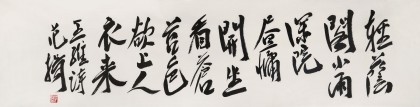 輕蔭
閣小雨
深院
昼慵
開坐
看蒼
苔色
欲上人
衣来
王維詩
范揚